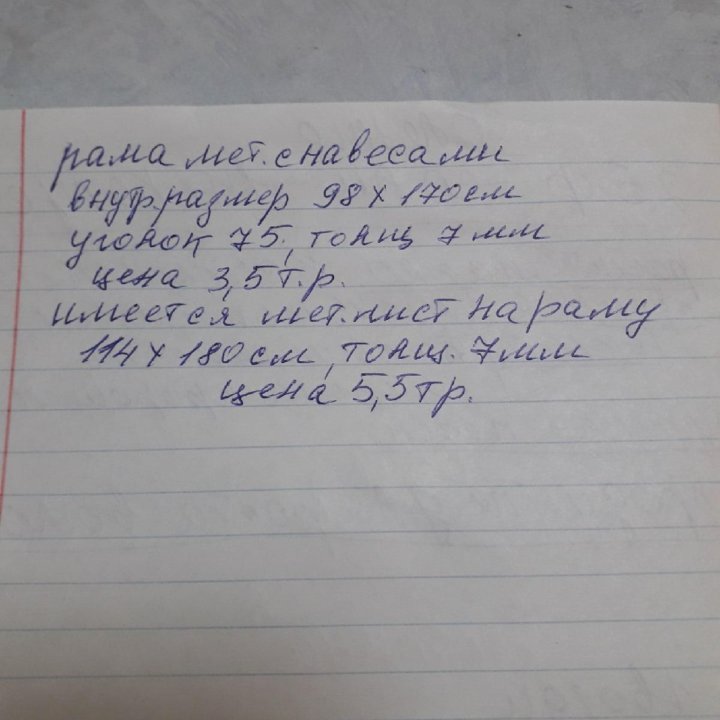 рама мет. с навесами
внутр. размер 98 х 170 см
уголок 75, толщ 7 мм
цена 3,5 т.р.
имеется мет. лист на раму
114 х 180 см, толщ. 7 мм
цена 5,5 тр.